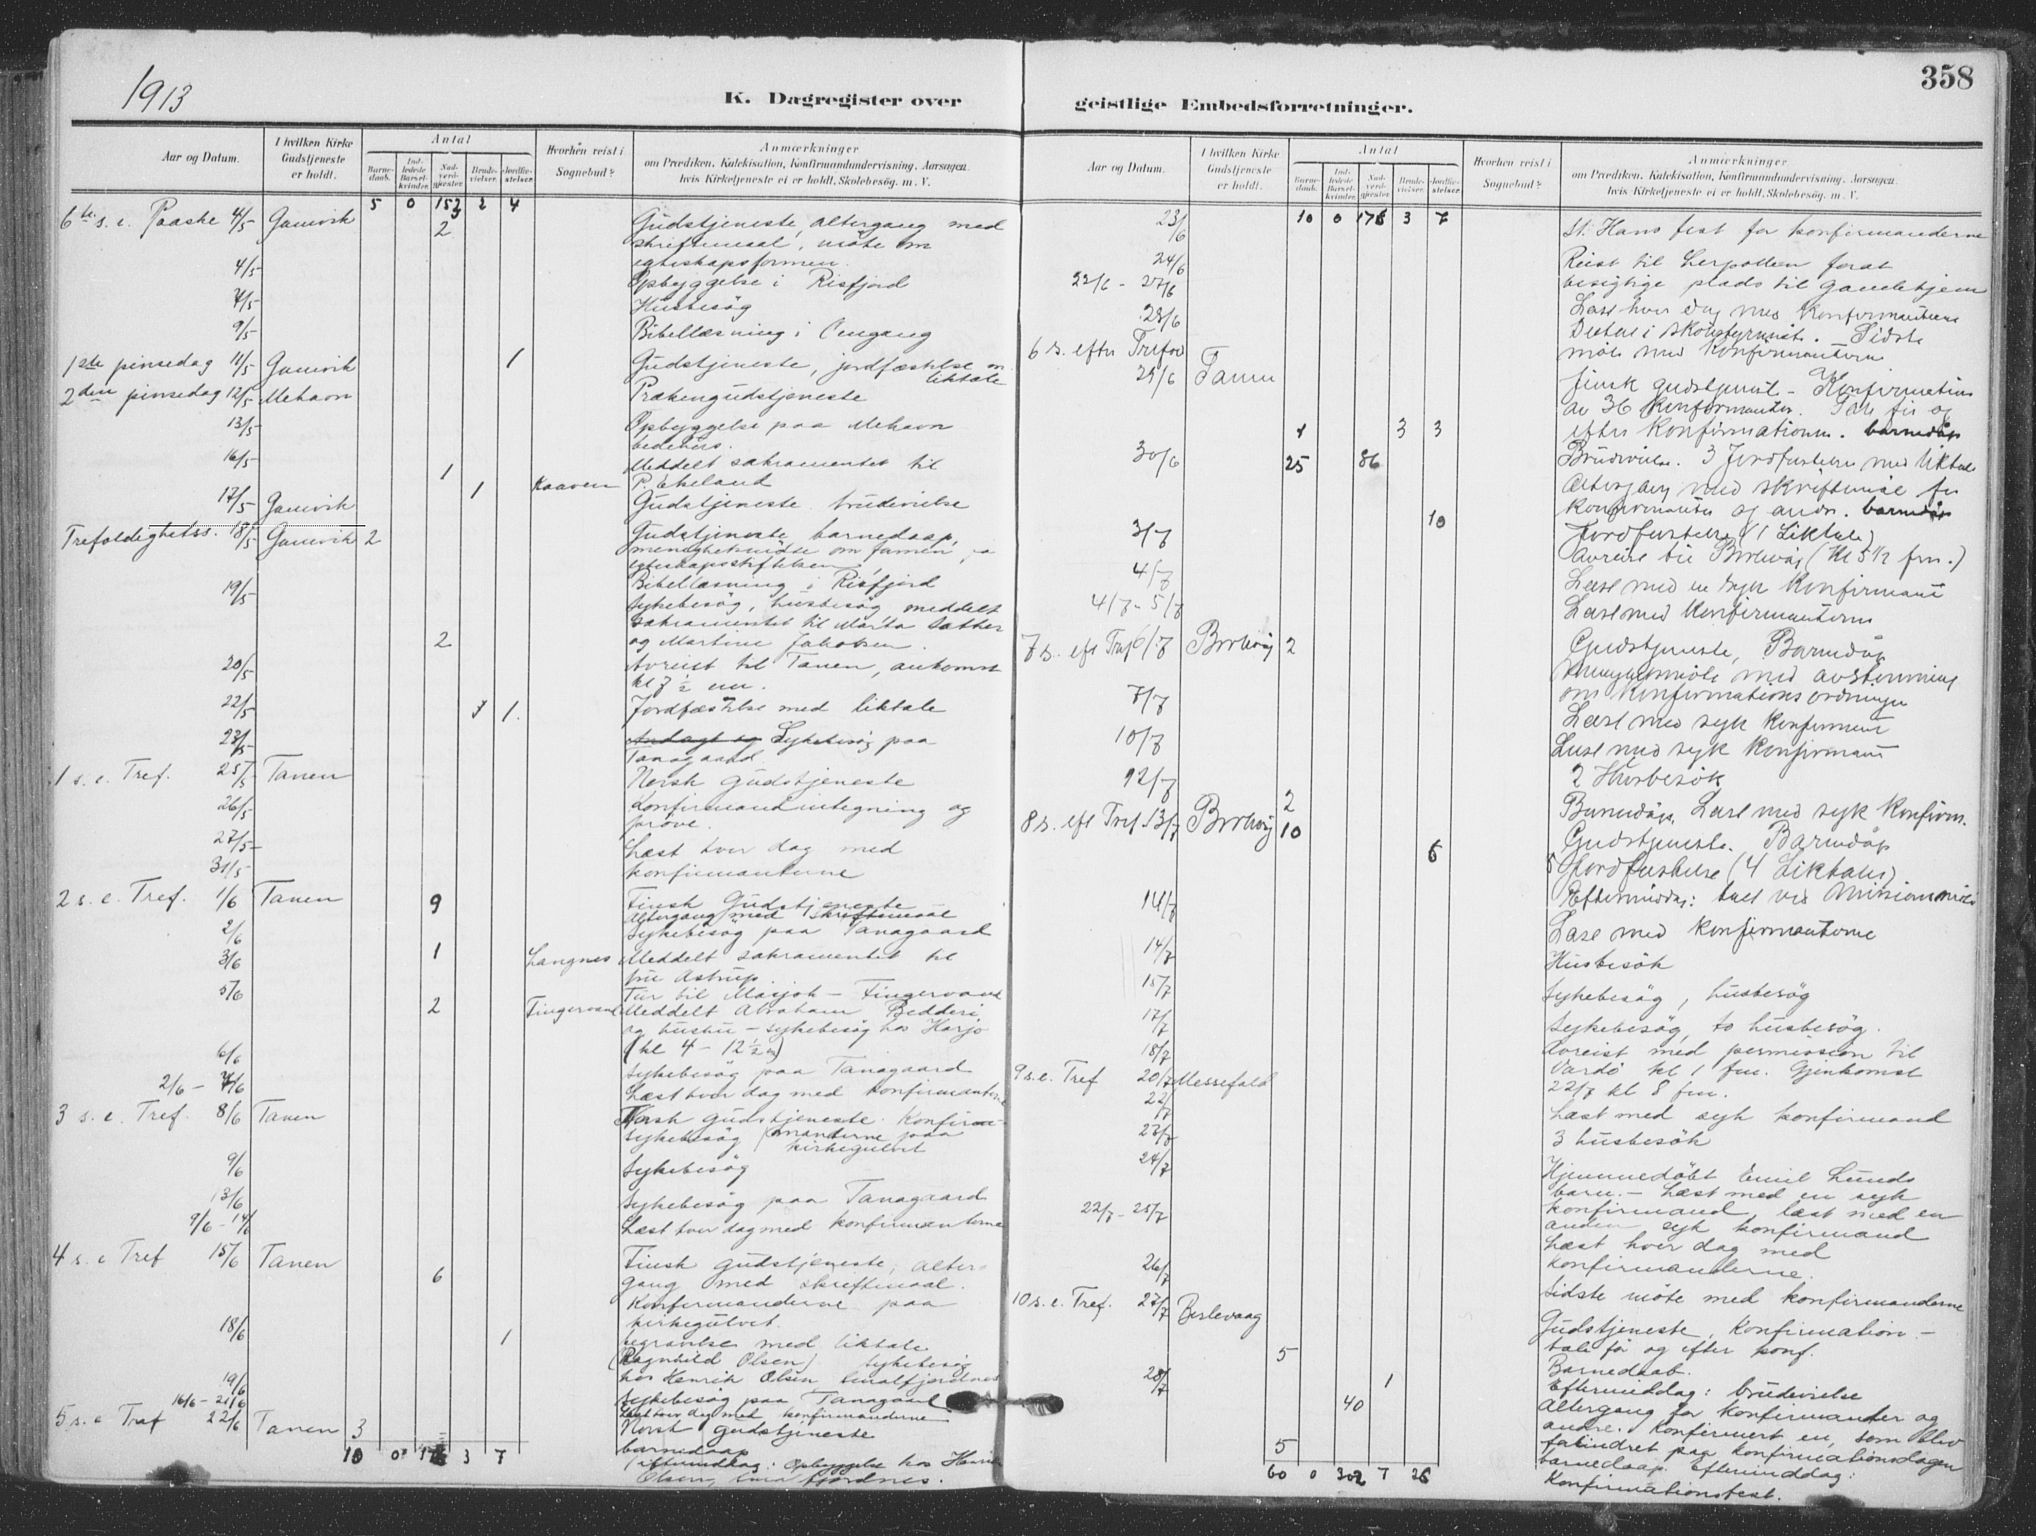 1913
K. Dagregister over
Aar og Datum.
I hvilken Kirke Gudstjeneste er holdt.
Antal
Barnedaab.
Indledede Barselkvinder.
Nadverdgjester.
Brudevielser.
Jordfæstelser.
Hvorhen reist i Sognebud?
Anmærkninger
om Prædiken, Katekisation, Konfirmandundervisning, Aarsagen,
hvis Kirketjeneste ei er holdt, Skolebesøg m. V.
5 0 2 4
6te s. e. Paaske 4/5 Gamvik 2 Gudstjeneste, altergang med
skriftemaal, møte om
egteskapsformen.
4/5 Opbyggelse i Risfjord
7/5 Husbesøg
9/5 Bibellæsning i Omgang
1ste pinsedag 11/5 Gamvik 1 Gudstjeneste, jordfæstelse m
liktale
2den pinsedag 12/5 Mehavn Prækengudstjeneste
13/5 Opbyggelse paa Mehavn
bedehus.
16/5 1 Kaaven Meddelt sakramentet til
P. Ekeland
17/5 Gamvik 1 Gudstjeneste brudevielse
Trefoldighetss. 18/5 Gamvik 2 Gudstjeneste barnedaap,
menighetsmøte om
egteskapsstiftelsen
19/5 Bibellæsning i Risfjord
Sykebesøg, husbesøg, meddelt
2 sakramentet til
og Martine Jakobsen.
20/5 Avreist til Tanen, ankomst
kl 7 1/2 em.
22/5 1 Jordfæstelse med liktale
23/5 Andagt og Sykebesøg paa
Tanagaard
1 s. e. Tref. 25/5 Tanen Norsk gudstjeneste
26/5 Konfirmandindtegning og
prøve.
27/5 Læst hver dag med
31/5 konfirmanterne
2 s. e. Tref. 1/6 Tanen 9 Finsk Gudstjeneste
Altergang med skriftemaal
2/6 Sykebesøg paa Tanagaard
3/6 1 Langnes Meddelt sakramentet til
fru Astrup
5/6 Tur til Masjok - Fingervand
2 Fingervand Meddelt Abraham
og hustru - sykebesøg hos Harjo
(kl 4 - 12 1/2)
6/6 Sykebesøg paa Tanagaard
2/6 - 7/6 Læst hver dag med konfirmanterne
3 s. e. Tref. 8/6 Tanen Norsk gudstjeneste. Konfirmanderne paa
kirkegulvet
Sykebesøg
9/6 Sykebesøg
13/6 Sykebesøg paa Tanagaard
9/6 - 14/6 Læst hver dag med konfirmanterne
4 s. e Tref 15/6 Tanen 6 Finsk gudstjeneste, altergang
med skriftemaal.
Konfirmanderne paa
kirkegulvet.
18/6 1 begravelse med liktale
(Ragnhild Olsen) Sykebesøg
19/6 hos Henrik Olsen Smalfjordnes
Sykebesøg paa Tanagaard
16/6 - 21/6 Læst hver dag med konfirmanderne
5 s. e Tref 22/6 Tanen 3 Norsk gudstjeneste
barnedaap
Eftermiddag: Opbyggelse hos Henrik
Olsen, Smalfjordnes.
10 0 3 7
geistlige Embedsforretninger.
358
Aar og Datum.
I hvilken Kirke Gudstjeneste er holdt.
Antal
Barnedaab.
Indledede Barselkvinder.
Nadverdgjester.
Brudevielser.
Jordfæstelser.
Hvorhen reist i Sognebud?
Anmærkninger
om Prædiken, Katekisation, Konfirmandundervisning, Aarsagen,
hvis Kirketjeneste ei er holdt, Skolebesøg m. V.
10 0 176 3 7
23/6 St. Hans fest for konfirmanderne
24/6 Reist til Lerpollen forat
besigtige plads til Gamlehjem
22/6 - 27/6 Læst hver dag med konfirmanterne
28/6 Sidste
møte med konfirmanterne
6 s. efter Trefol 29/6 Tanen finsk gudstjenest - Konfirmation
av 36 konfirmanter. Tale før og
1 3 3 efter konfirmationen. barnedåp
30/6 25 86 Brudevielse. 3 Jordfæstelse med liktale
Altergang med skriftemål for
konfirmanter og andre. barnedåp
10 Jordfæstelse (1 Liktale)
3/7 Avreise til Berlevåg (kl 5 1/2 fm.)
4/7 Læse med en syk konfirmant
4/7 - 5/7 Læse med konfirmanterne
7 s. eft Tref 6/7 Berlevåg 2 Gudstjeneste, Barnedåp
Menighetsmøte med avstemning
om konfirmationsordningen
7/7 Læse med syk konfirmant
10/7 Læse med syk konfirmant
12/7 2 Husbesøk
2 Barnedåp. Læse med syk konfirm.
8 s. eft Tref 13/7 Berlevåg 10 Gudstjeneste. Barnedåp
6 Jordfæstelse (4 Liktaler)
Eftermiddag: talt ved Missionsmøte
14/7 Læse med konfirmanterne
14/7 Husbesøk
15/7 Sykebesøg, husbesøg
17/7 Sykebesøg, to husbesøg.
18/7 Avreist med permission til
9 s. e. Tref 20/7 Messefald Vardø kl 1 fm. Gjenkomst
22/7 kl 8 fm.
22/7 Læst med syk konfirmand
23/7 3 husbesøk
24/7 Hjemmedøbt Emil Lunds
barn. - Læst med en syk
konfirmand, læst med en
anden syk konfirmand
22/7 - 25/7 Læst hver dag med
konfirmanderne.
26/7 Sidste møte med konfirmanderne
10 s. e. Tref. 27/7 Berlevaag Gudstjeneste, konfirmation -
tale før og efter konf.
5 Barnedaab.
28/7 1 Eftermiddag: brudevielse
40 Altergang for konfirmander og
andre. Konfirmert en, som blev
forhindret paa konfirmationsdagen
5 barnedaap. Eftermiddag:
konfirmationsfest.
60 0 302 7 26